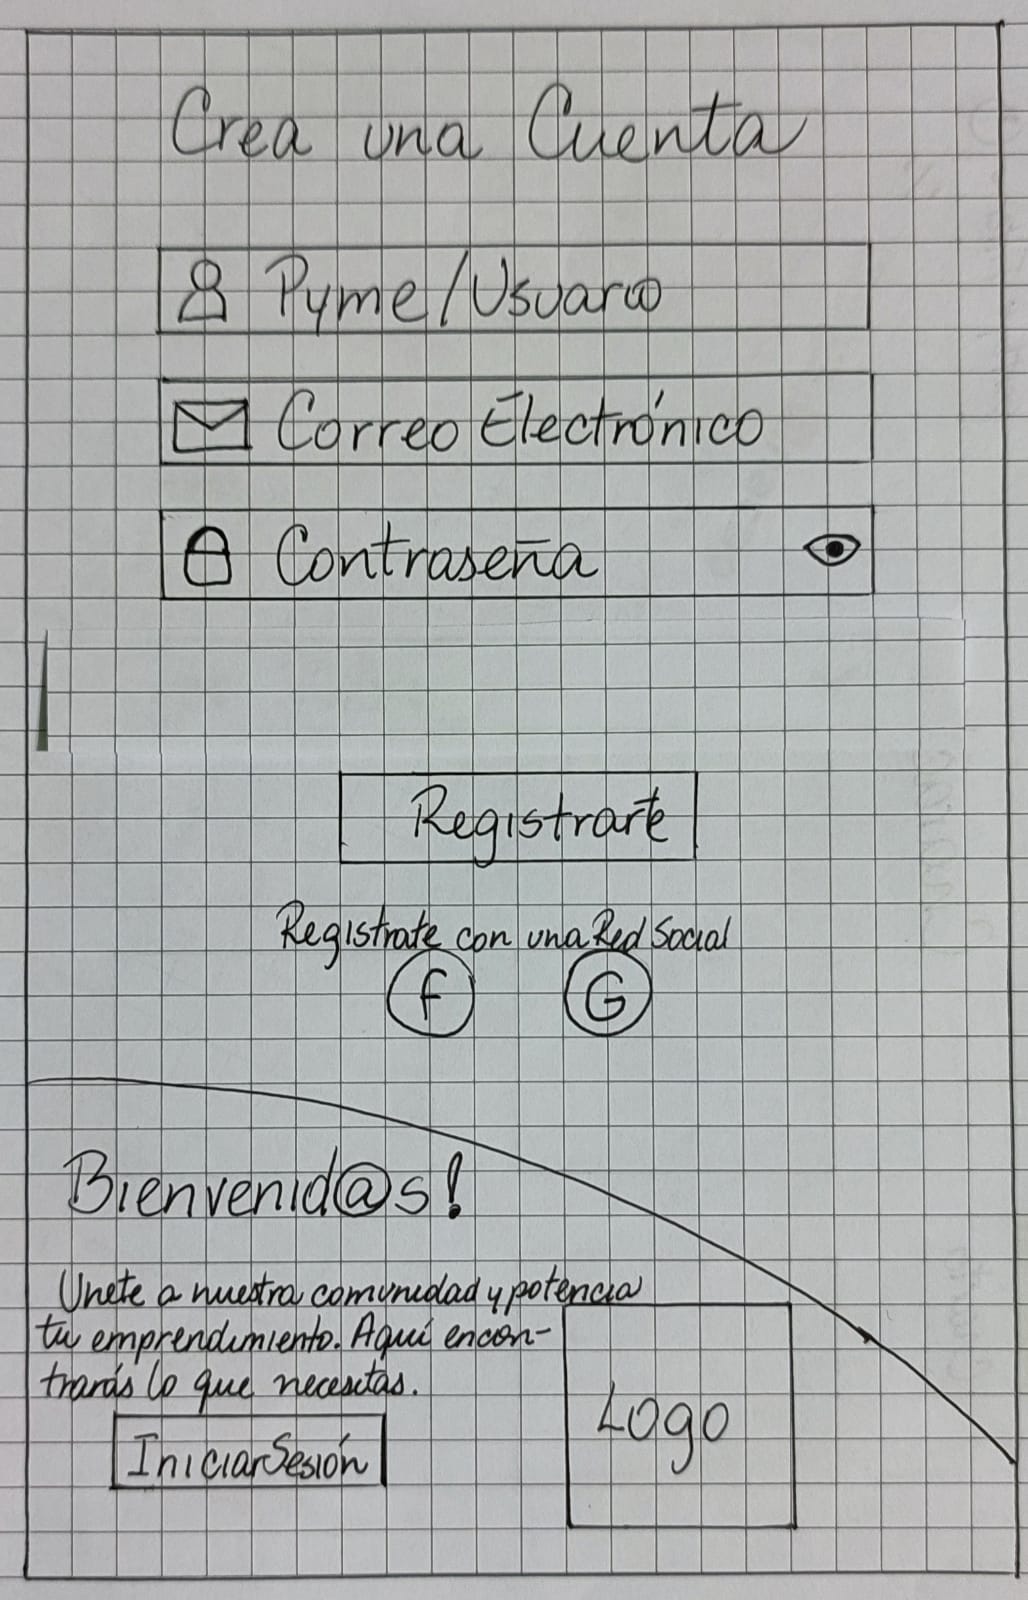 Crea una Cuenta
Pyme/Usuario
Correo Electrónico
Contraseña
Registrarte
Registrate con una Red Social
f
G
Bienvenid@s!
Unete a nuestra comunidad y potencia
tu emprendimiento. Aquí encon-
trarás lo que necesitas.
Iniciar Sesión
Logo